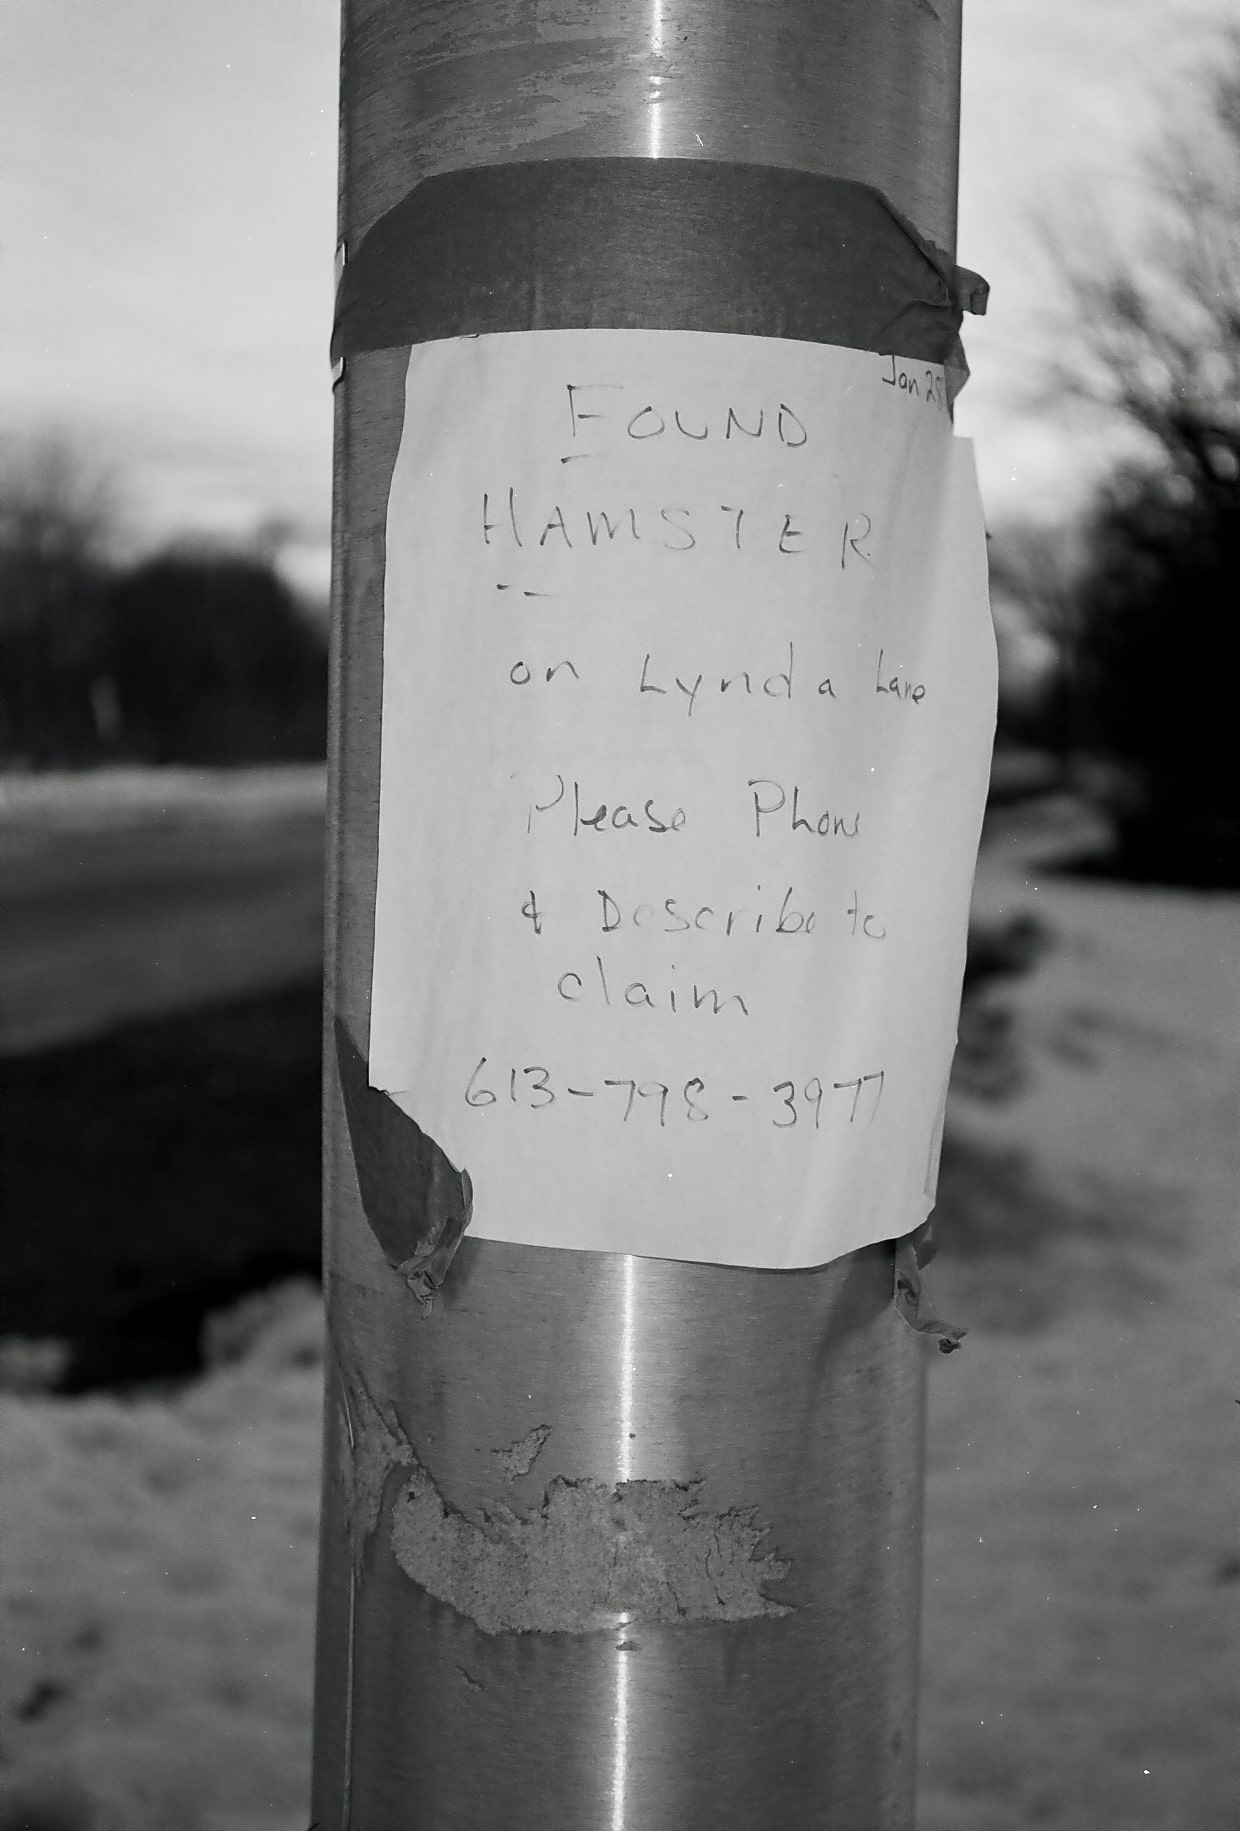 Jan 28
FOUND
HAMSTER
on Lynda Lane
Please Phone
& Describe to
claim
613-798-3977